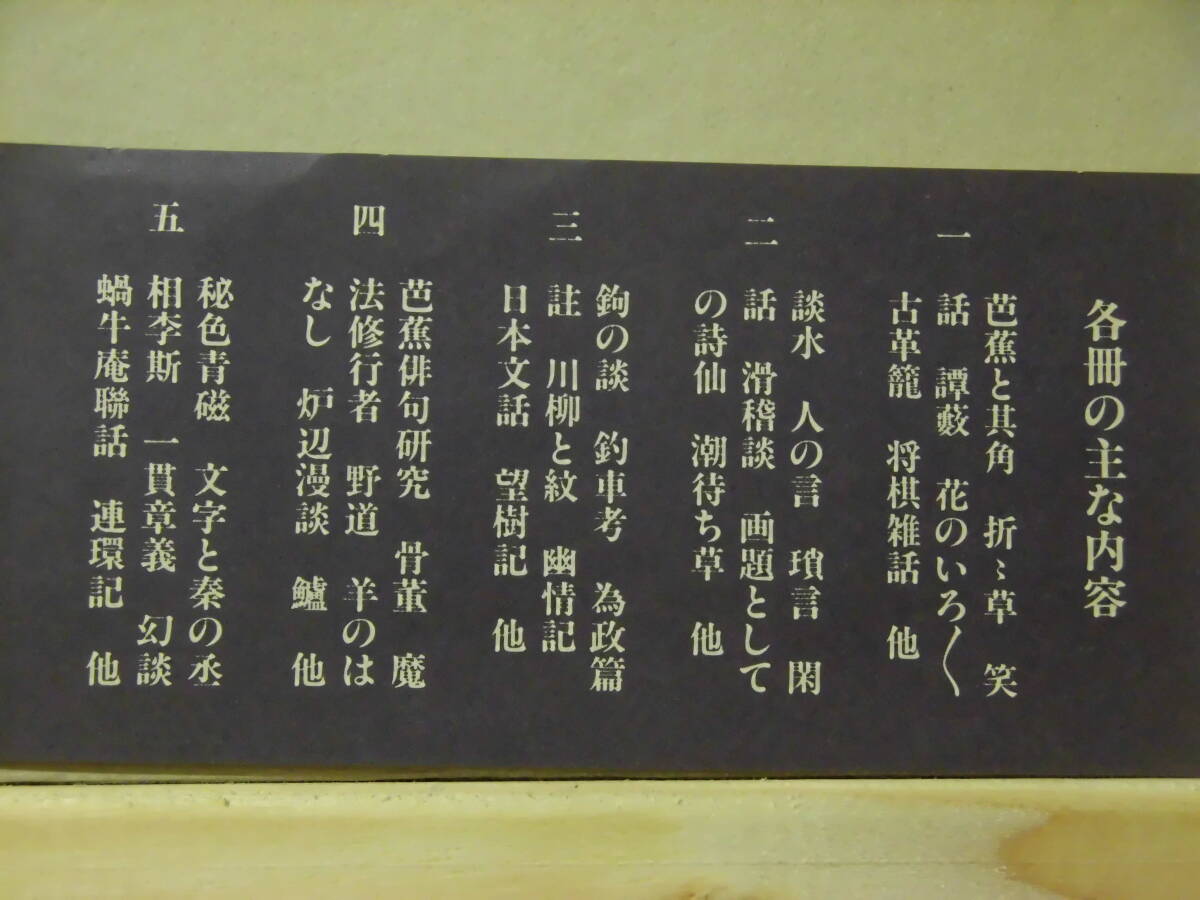 各冊の主な内容
一
芭蕉と其角 折〻草 笑
話 譚藪 花のいろ〱
古革籠 将棋雑話 他
二
談水 人の言 瑣言 閑
話 滑稽談 画題として
の詩仙 潮待ち草 他
三
鉤の談 釣車考 為政篇
註 川柳と紋 幽情記
日本文話 望樹記 他
四
芭蕉俳句研究 骨董 魔
法修行者 野道 羊のは
なし 炉辺漫談 鱸 他
五
秘色青磁 文字と秦の丞
相李斯 一貫章義 幻談
蝸牛庵聯話 連環記 他